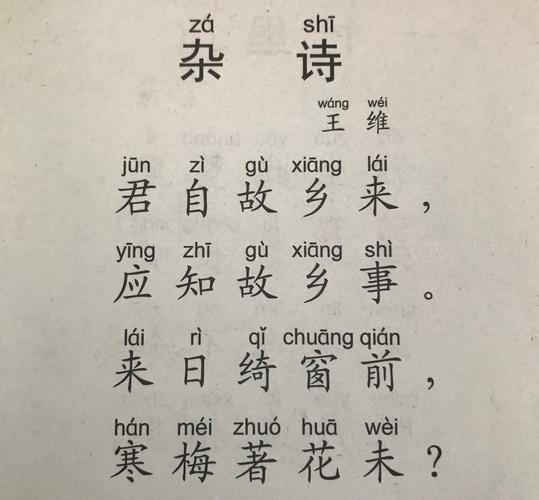 zá shī
杂 诗
wáng wéi
王 维
jūn zì gù xiāng lái
君 自 故 乡 来 ，
yīng zhī gù xiāng shì
应 知 故 乡 事 。
lái rì qǐ chuāng qián
来 日 绮 窗 前 ，
hán méi zhuó huā wèi
寒 梅 著 花 未 ？